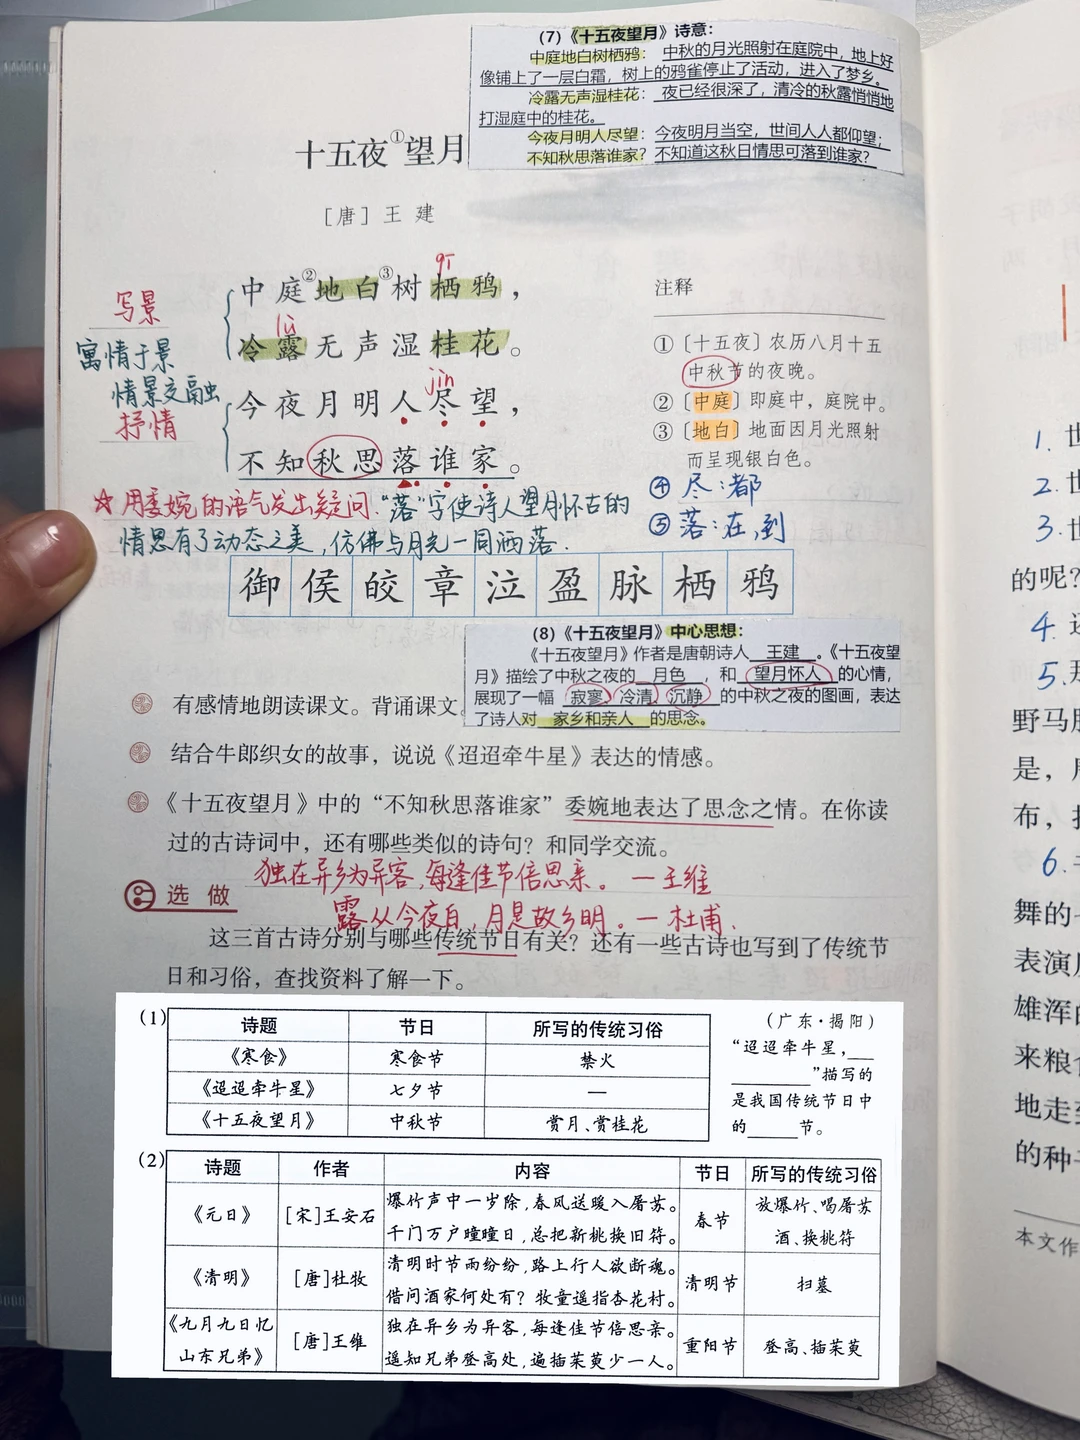 (7)《十五夜望月》诗意:
中庭地白树栖鸦: 中秋的月光照射在庭院中，地上好
像铺上了一层白霜，树上的鸦雀停止了活动，进入了梦乡。
冷露无声湿桂花: 夜已经很深了，清冷的秋露悄悄地
打湿庭中的桂花。
今夜月明人尽望: 今夜明月当空，世间人人都仰望;
不知秋思落谁家? 不知道这秋日情思可落到谁家?
十五夜①望月
［唐］王 建
qī
中庭②地白③树栖鸦，
lù
冷露无声湿桂花。
jìn
今夜月明人尽望，
不知秋思落谁家。
写景
寓情于景
情景交融
抒情
注释
①〔十五夜〕农历八月十五
中秋节的夜晚。
②〔中庭〕即庭中，庭院中。
③〔地白〕地面因月光照射
而呈现银白色。
④ 尽:都
⑤ 落:在,到
☆用委婉的语气发出疑问.“落”字使诗人望月怀古的
情思有了动态之美,仿佛与月光一同洒落.
御 侯 皎 章 泣 盈 脉 栖 鸦
(8)《十五夜望月》中心思想:
《十五夜望月》作者是唐朝诗人 王建 。《十五夜望
月》描绘了中秋之夜的 月色 ，和 望月怀人 的心情，
展现了一幅 寂寥、冷清、沉静 的中秋之夜的图画，表达
了诗人对 家乡和亲人 的思念。
有感情地朗读课文。背诵课文
结合牛郎织女的故事，说说《迢迢牵牛星》表达的情感。
《十五夜望月》中的“不知秋思落谁家”委婉地表达了思念之情。在你读
过的古诗词中，还有哪些类似的诗句？和同学交流。
独在异乡为异客,每逢佳节倍思亲。—王维
选 做
露从今夜白,月是故乡明。—杜甫.
这三首古诗分别与哪些传统节日有关？还有一些古诗也写到了传统节
日和习俗，查找资料了解一下。
(1)
诗题 节日 所写的传统习俗
《寒食》 寒食节 禁火
《迢迢牵牛星》 七夕节 —
《十五夜望月》 中秋节 赏月、赏桂花
(广东·揭阳)
“迢迢牵牛星,__
______”描写的
是我国传统节日中
的____节。
(2)
诗题 作者 内容 节日 所写的传统习俗
《元日》 [宋]王安石 爆竹声中一岁除,春风送暖入屠苏。
千门万户曈曈日,总把新桃换旧符。 春节 放爆竹、喝屠苏
酒、换桃符
《清明》 [唐]杜牧 清明时节雨纷纷,路上行人欲断魂。
借问酒家何处有？牧童遥指杏花村。 清明节 扫墓
《九月九日忆
山东兄弟》 [唐]王维 独在异乡为异客,每逢佳节倍思亲。
遥知兄弟登高处,遍插茱萸少一人。 重阳节 登高、插茱萸
1. 世
2.
3. 世
的呢?
4. 这
5.
野马
是，
布，
6.
舞的
表演
雄浑的
来粮食
地走
的种
本文作